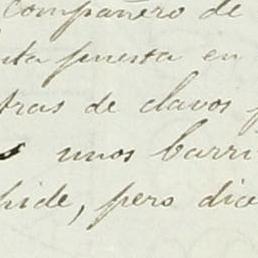 compañero de
nta puesta en
tras de clavos
s unos barri
hide, pero dice